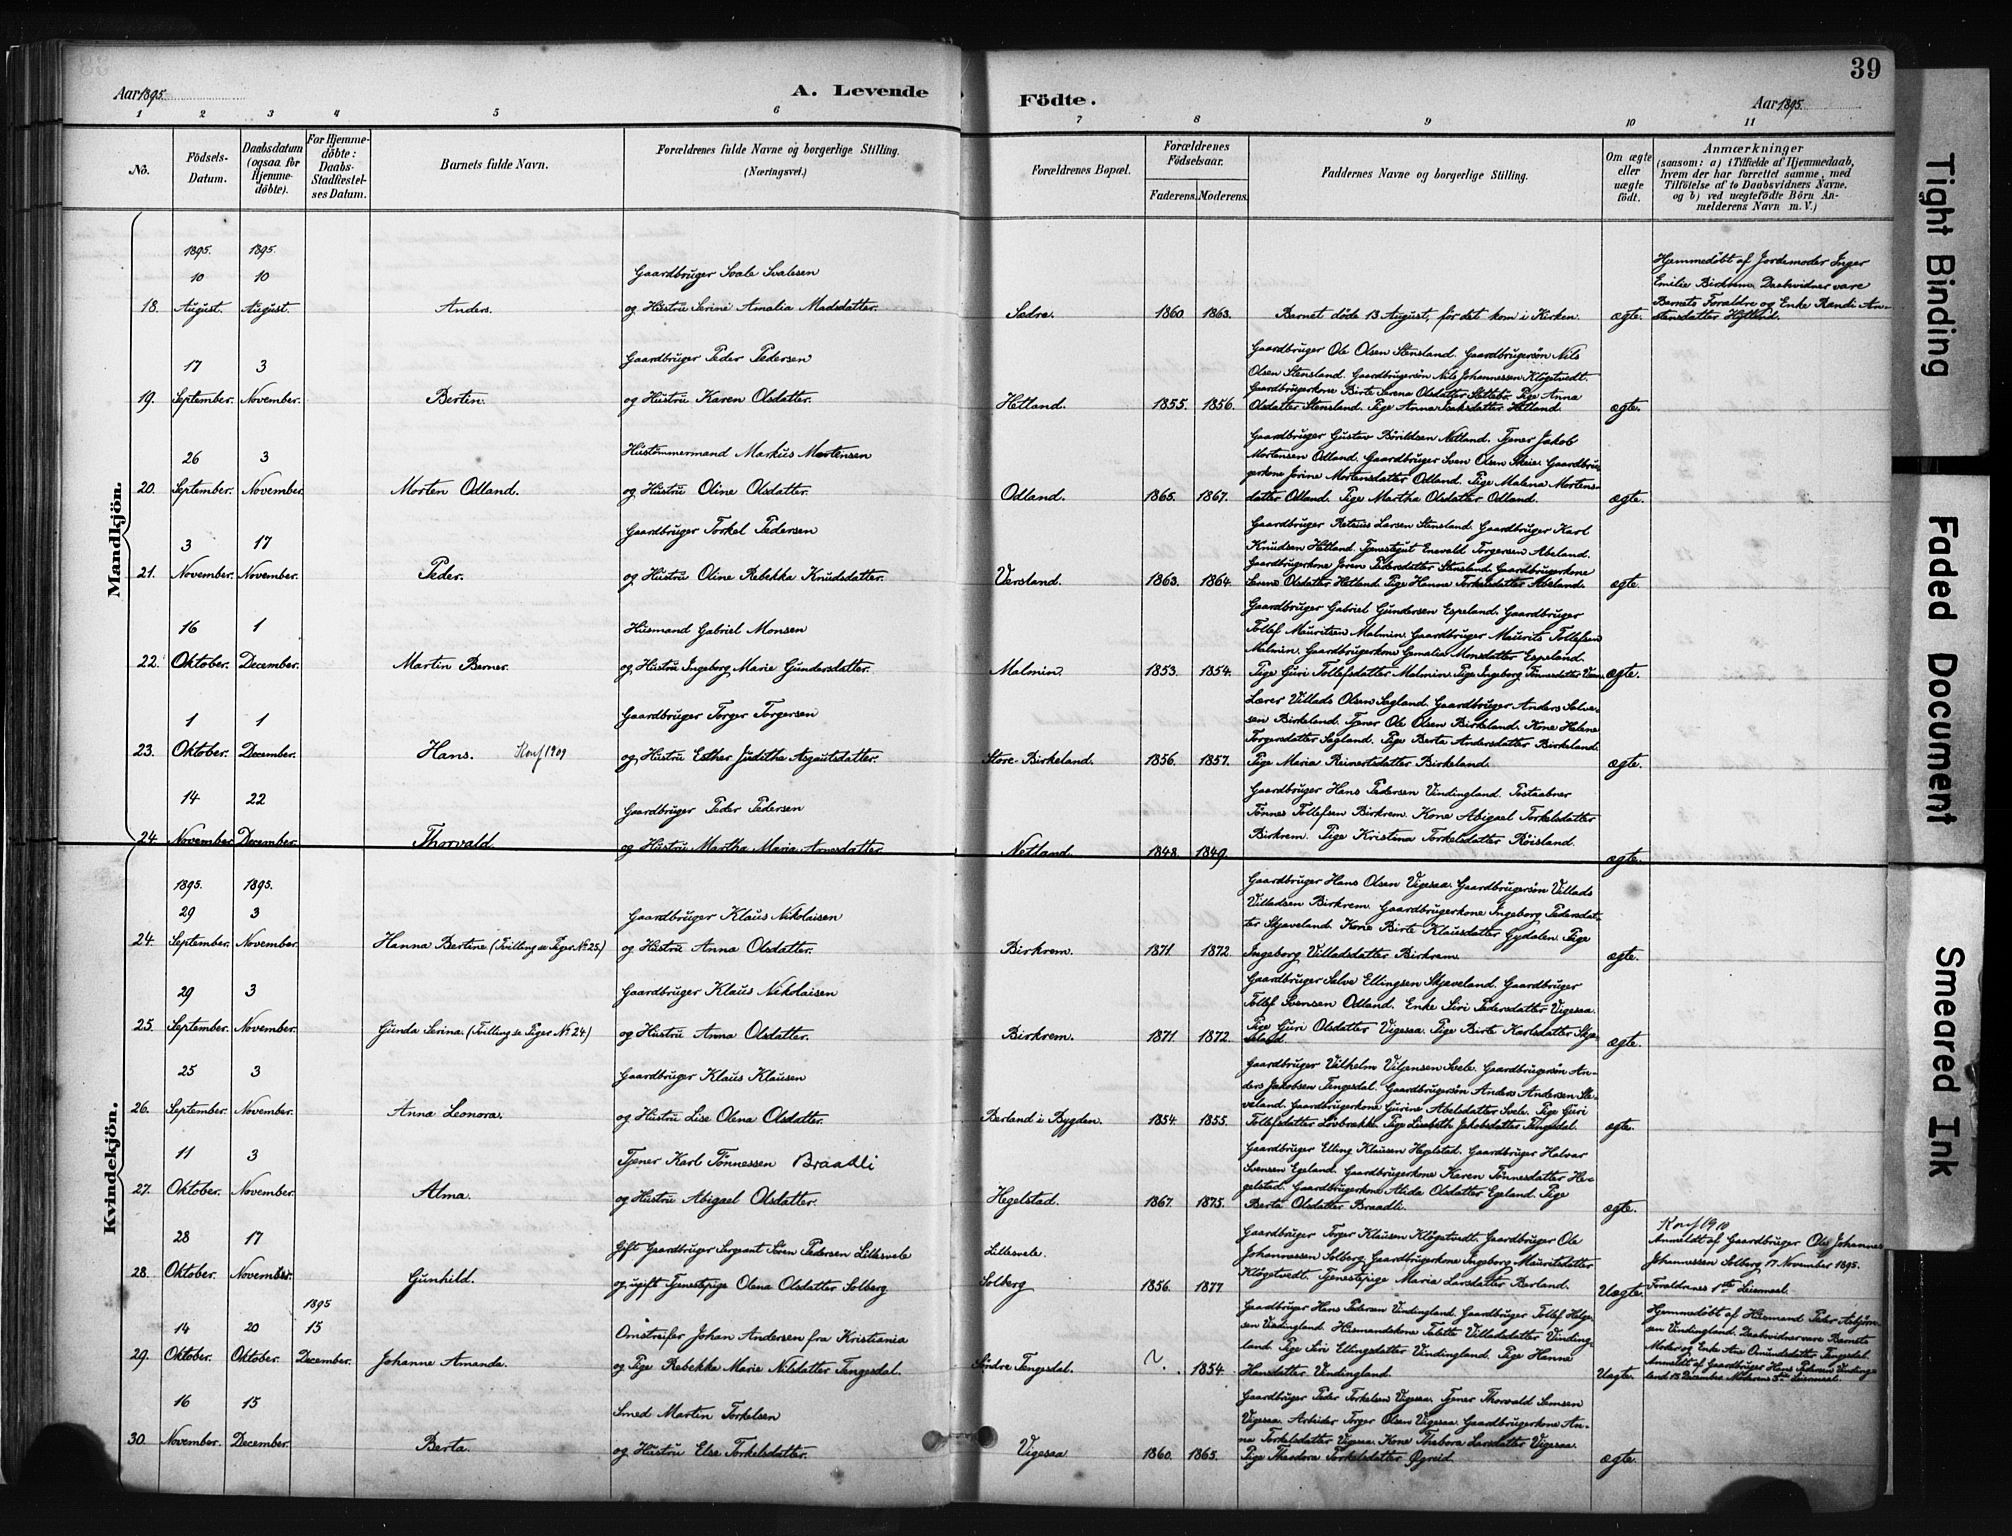 39
Aar 1895.
A. Levende
Födte.
Aar 1895.
1 2 3 4 5 6 7 8 9 10 11
No.
Födsels-Datum.
Daabsdatum (ogsaa for Hjemme-döbte).
For Hjemme-döbte: Daabs-Stadfæstel-ses Datum.
Barnets fulde Navn.
Forældrenes fulde Navne og borgerlige Stilling.
(Næringsvei.)
Forældrenes Bopæl.
Forældrenes Födselsaar.
Faderens. Moderens.
Faddernes Navne og borgerlige Stilling.
Om ægte eller uægte födt.
Anmærkninger
(saasom: a) i Tilfælde af Hjemmedaab, hvem der har forrettet samme, med Tilföielse af to Daabsvidners Navne, og b) ved uægtefödte Börn Anmelderens Navn m. V.)
Mandkjön.
1895. 1895.
10 10
18. August. August. Anders.
Gaardbruger Svale Svalesen
og Hustru Serine Amalia Madsdatter.
Sædre. 1860 1863.
Barnet döde 13 August, för det kom i Kirken.
ægte.
Hjemmedöbt af Jordemoder Inger
Emilie Birkrem. Daabsvidner vare
Barnets Forældre og Enke Randi An-
stensdatter Hytland.
17 3
19. September. November. Bertin.
Gaardbruger Peder Pedersen
og Hustru Karen Olsdatter.
Hetland. 1855. 1856.
Gaardbruger Ole Olsen Stensland. Gaardbrugersön Nils
Olsen Stensland. Gaardbrugersön Nils Johannessen Klögetvedt.
Gaardbrugerkone Birte Serena Olsdatter Sættebr. Pige Anna
Olsdatter Stensland. Pige Anna Isaksdatter Hetland.
ægte.
26 3
20. September. November. Morten Odland.
Hustömmermand Markus Mortensen
og Hustru Oline Olsdatter.
Odland. 1865. 1867.
Gaardbruger Gustav Börildsen Netland. Tjener Jakob
Mortensen Odland. Gaardbruger Sven Olsen Skeie. Gaardbru-
gerkone Jorine Mortensdatter Odland. Pige Malena Mortens-
datter Odland. Pige Martha Olsdatter Odland.
ægte.
3 17
21. November. November. Peder.
Gaardbruger Torkel Pedersen
og Hustru Oline Rebekka Knudsdatter.
Versland. 1863. 1864.
Gaardbruger Retsius Larsen Stensland. Gaardbruger Karl
Knudsen Hetland. Tjenestegut Enevald Torgersen Abeland.
Gaardbrugerkone Joren Pedersdatter Stensland. Gaardbrugerkone
Serine Olsdatter Hetland. Pige Hanne Torkelsdatter Abeland.
ægte.
16 1
22. Oktober. December. Martin Berner.
Husmand Gabriel Monsen
og Hustru Ingeborg Marie Gundersdatter.
Malmin. 1853. 1854.
Gaardbruger Gabriel Gundersen Espeland. Gaardbruger
Tollef Mauritsen Malmin. Gaardbruger Maurits Tollefsen
Malmin. Gaardbrugerkone Gemalia Monsdatter Espeland.
Pige Guri Tollefsdatter Malmin. Pige Ingeborg Tönnesdatter
ægte.
1 1
23. Oktober. December. Hans. Konf 1909
Gaardbruger Torger Torgersen
og Hustru Esther Juditha Asgautsdatter.
Store-Birkeland. 1856. 1857.
Lærer Villads Olsen Sagland. Gaardbruger Anders Salve-
sen Birkeland. Tjener Ole Olsen Birkeland. Kone Helene
Torgersdatter Sagland. Pige Berta Andersdatter Birkeland.
Pige Maria Reinertsdatter Birkeland.
ægte.
14 22
24. November. December. Thorvald.
Gaardbruger Peder Pedersen
og Hustru Martha Maria Arnesdatter
Netland. 1848. 1849.
Gaardbruger Hans Pedersen Vindingland. Postaabner
Tönnes Tollefsen Birkrem. Kone Abigael Torkelsdatter
Birkrem. Pige Kristina Torkelsdatter Röisland.
ægte.
Kvindekjön.
1895. 1895.
29 3
24. September. November. Hanna Bertine (Tvilling se Piger No 25.)
Gaardbruger Klaus Nikolaisen
og Hustru Anna Olsdatter.
Birkrem. 1871. 1872.
Gaardbruger Hans Olsen Vigesaa. Gaardbrugersön Villads
Villadsen Birkrem. Gaardbrugerkone Ingeborg Pedersdat-
ter Skjæveland. Kone Birte Klausdatter Gydalen. Pige
Ingeborg Villadsdatter Birkrem.
ægte.
29 3
25. September. November. Gunda Serina. (Tvilling se Piger No 24.)
Gaardbruger Klaus Nikolaisen
og Hustru Anna Olsdatter.
Birkrem. 1871. 1872.
Gaardbruger Salve Ellingsen Skjæveland. Gaardbruger
Tollef Svensen Odland. Enke Siri Pedersdatter Vigesaa.
Pige Guri Olsdatter Vigesaa. Pige Birte Karlsdatter Skjæ-
veland.
ægte.
25 3
26. September. November. Anna Leonora.
Gaardbruger Klaus Klausen
og Hustru Lise Olena Olsdatter.
Berland i Bygden. 1854. 1855.
Gaardbruger Vilhelm Viljensen Svele. Gaardbrugersön An-
ders Jakobsen Tengesdal. Gaardbrugersön Anders Andersen Ske-
veland. Gaardbrugerkone Gurine Abelsdatter Svele. Pige Guri
Tollefsdatter Lövbrække. Pige Lisebeth Jakobsdatter Tengesdal.
ægte.
11 3
27. Oktober. November. Alma.
Tjener Karl Tönnessen Braadli
og Hustru Abigael Olsdatter.
Hegelstad. 1867. 1875.
Gaardbruger Elling Klausen Hegelstad. Gaardbruger Halvar
Svensen Egeland. Gaardbrugerkone Karen Tönnesdatter He-
gelstad. Gaardbrugerkone Alida Olsdatter Egeland. Pige
Berta Olsdatter Braadli.
ægte.
28 17
28. Oktober. November. Gunhild.
Gift Gaardbruger Sergeant Sören Pedersen Lillesvele
og ugift Tjenestepige Olena Olsdatter Solberg
Lillesvele.
Solberg 1856. 1877
Gaardbruger Torger Klausen Klögetvedt. Gaardbruger Ole
Johannessen Solberg. Gaardbrugerkone Ingeborg Mauritsdatter
Klögetvedt. Tjenestepige Maria Larsdatter Berland.
Uægte.
Konf 1910
Anmeldt af Gaardbruger Ole Johannes
Johannessen Solberg 17 November 1895.
Forældrenes 1ste Leiermaal.
1895
14 20 15
29. Oktober. Oktober. December. Johanne Amanda.
Omstreifer Johan Andersen fra Kristiania
og Pige Rebekke Marie Nilsdatter Tengesdal.
Söndre Tengesdal. ?. 1854
Gaardbruger Hans Pedersen Vindingland. Gaardbruger Tollef Helge-
sen Vindingland. Husmandskone Talette Villadsdatter Vinding-
land. Pige Siri Ellingsdatter Vindingland. Pige Hanne
Hansdatter Vindingland.
Uægte.
Hjemmedöbt af Husmand Peder Asbjörn-
sen Vindingland. Daabsvidner vare Barnets
Moder og Enke Ane Omundsdatter Tengesdal.
Anmeldt af Gaardbruger Hans Pedersen Vinding-
land 15 December. Moderens Leiermaal.
16 15
30. November. December. Berta.
Smed Martin Torkelsen
og Hustru Else Torkelsdatter.
Vigesaa 1860. 1865.
Gaardbruger Peder Torkelsen Vigesaa. Tjener Thorvald Samsen
Vigesaa. Arbeider Torger Olsen Vigesaa. Gaardbrugerkone An-
na Torkelsdatter Vigesaa. Kone Thabora Larsdatter Vigesaa.
Pige Theodora Torkelsdatter Øgreid.
ægte.
Tight Binding
Faded Document
Smeared Ink